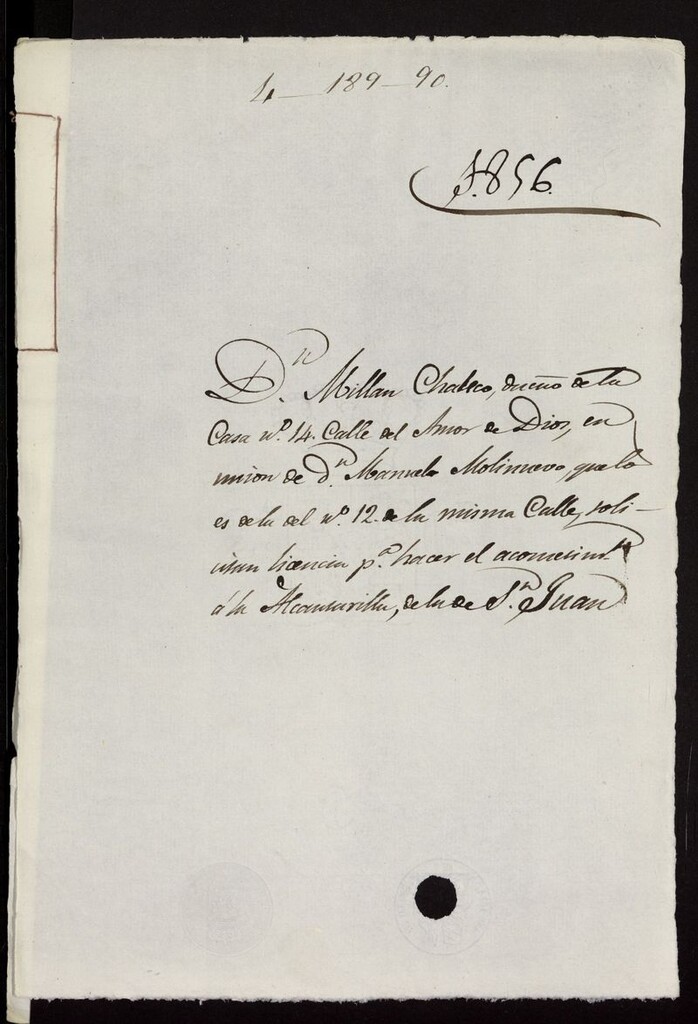 4 — 189 — 90.
1.856.
D.n Millan Chaleco, dueño de la
Casa n.o 14. Calle del Amor de Dios, en
union de D.n Manuela Molinuevo, que lo
es de la del n.o 12. de la misma Calle, soli-
citan licencia p.a hacer el acometim.to
á la Alcantarilla, de la de S.n Juan